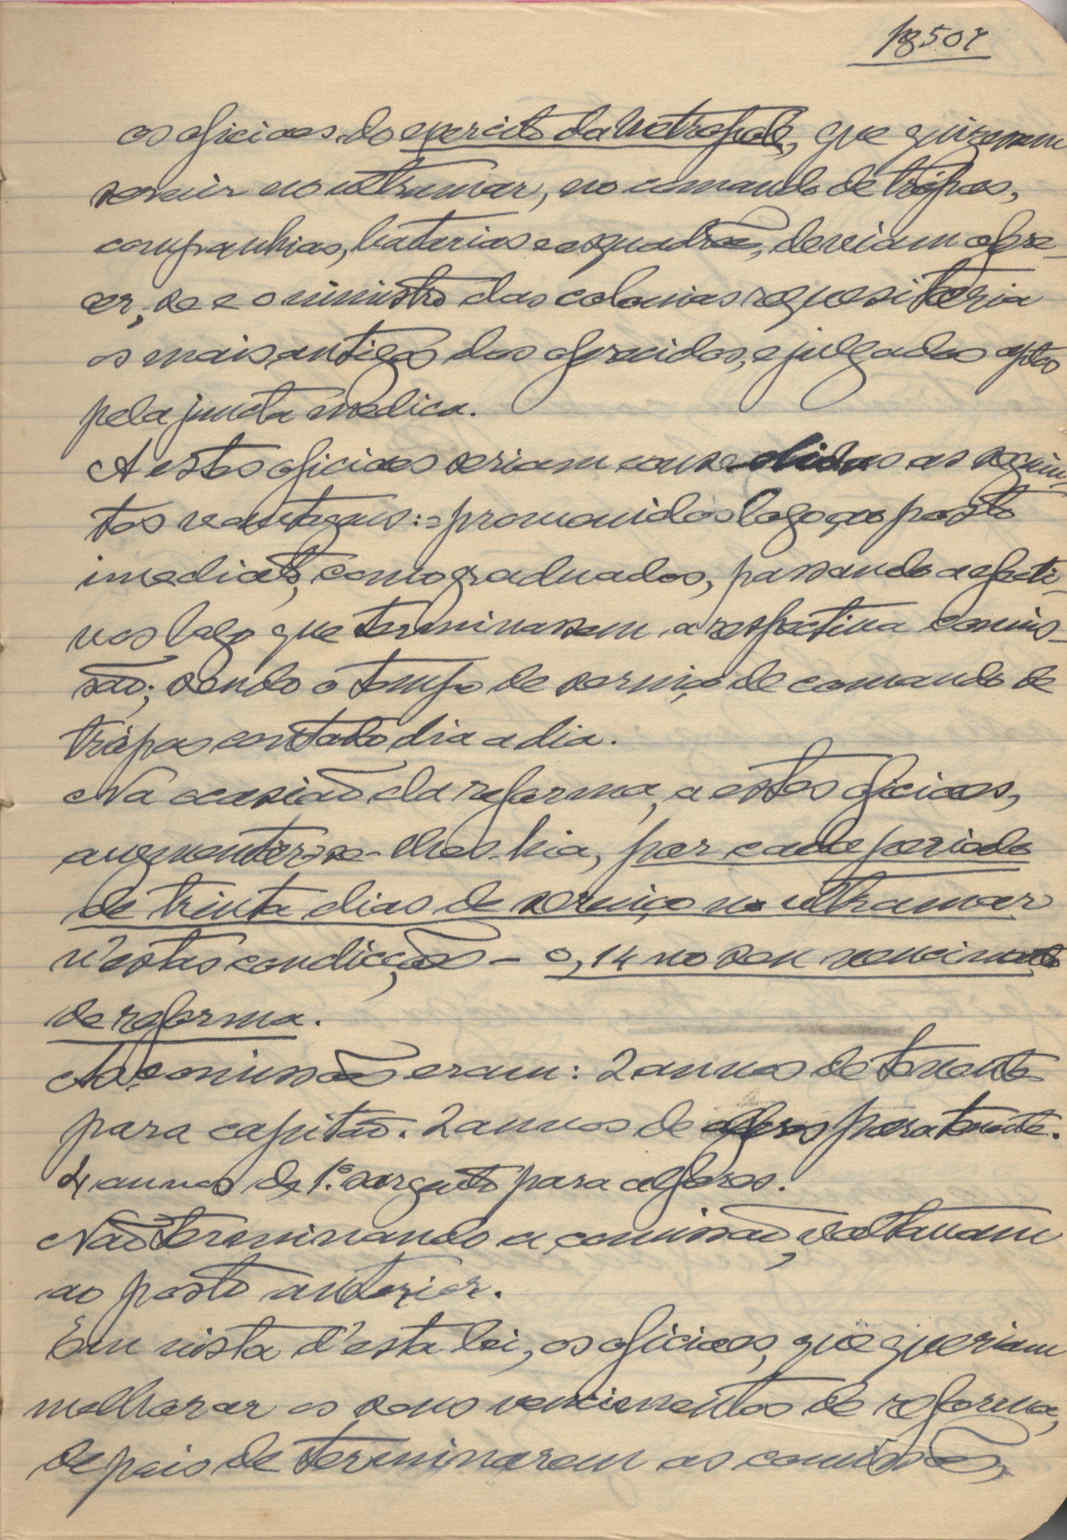 18507
os oficiaes do exercito da Metropole, que quizessem
servir no ultramar, no comando de trópas,
companhias, baterias e esquadrão, deviam ofre-
cer, se e o ministro das colonias requesitaria
os mais antigos dos ofrecidos, e julgados aptos
pela junta médica.
A estes oficiaes seriam concedidas as seguin-
tes vantagens: promovidos logo ao posto
imediato, como graduados, passando a efecti-
vos logo que terminassem a respectiva comis-
são; sendo o tempo de serviço de comando de
trópas contado dia a dia.
Na ocasião da reforma, a estes oficiaes,
augmentar-se-lhes-hia, por cada periodo
de trinta dias de serviço no ultramar
n'estas condicções - 0,14 no seu vencimento
de reforma.
As comissões eram: 2 annos de tenente
para capitão. 2 annos de alferes para tenente.
4 annos de 1.º sargento para alferes.
Não terminando a comissão, voltavam
ao posto anterior.
Em vista d'esta lei, os oficiaes, que queriam
melhorar os seus vencimentos de reforma,
depois de terminarem as comissões,